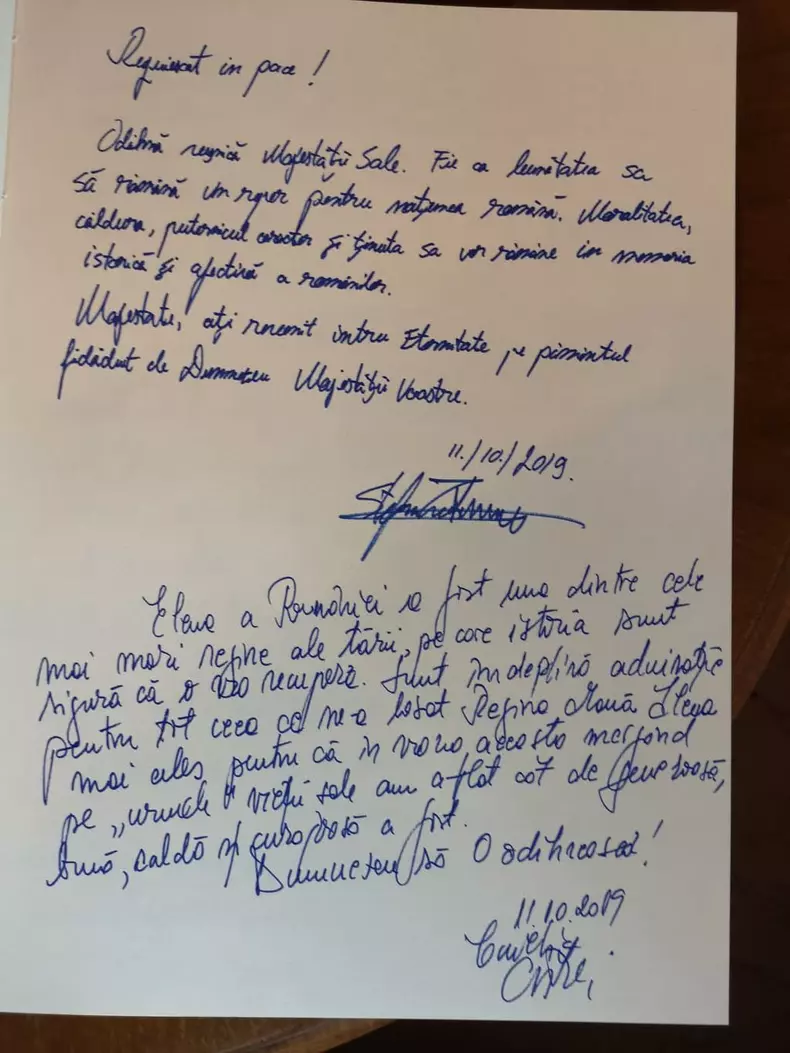 Requiescat in pace!
Odihnă veșnică Majestății Sale. Fie ca lumitatea sa
să rămână un reper pentru națiunea română. Moralitatea,
căldura, puternicul caracter și ținuta sa vor rămâne in memoria
istorică și afectivă a românilor.
Majestate, ați revenit intru Eternitate pe pămîntul
de Dumnezeu Majestății Voastre.
11./10./2019.
Elena a României a fost una dintre cele
mai mari regine ale țării, pe care istoria sunt
sigură că o va recupera. Sunt în deplină admirație
pentru tot ceea ce ne-a lăsat Regina Mamă Elena
mai ales pentru că în vara aceasta mergând
pe „urmele" vieții sale am aflat cât de generoasă,
bună, caldă și curajoasă a fost.
Dumnezeu să O odihnească!
11.10.2019